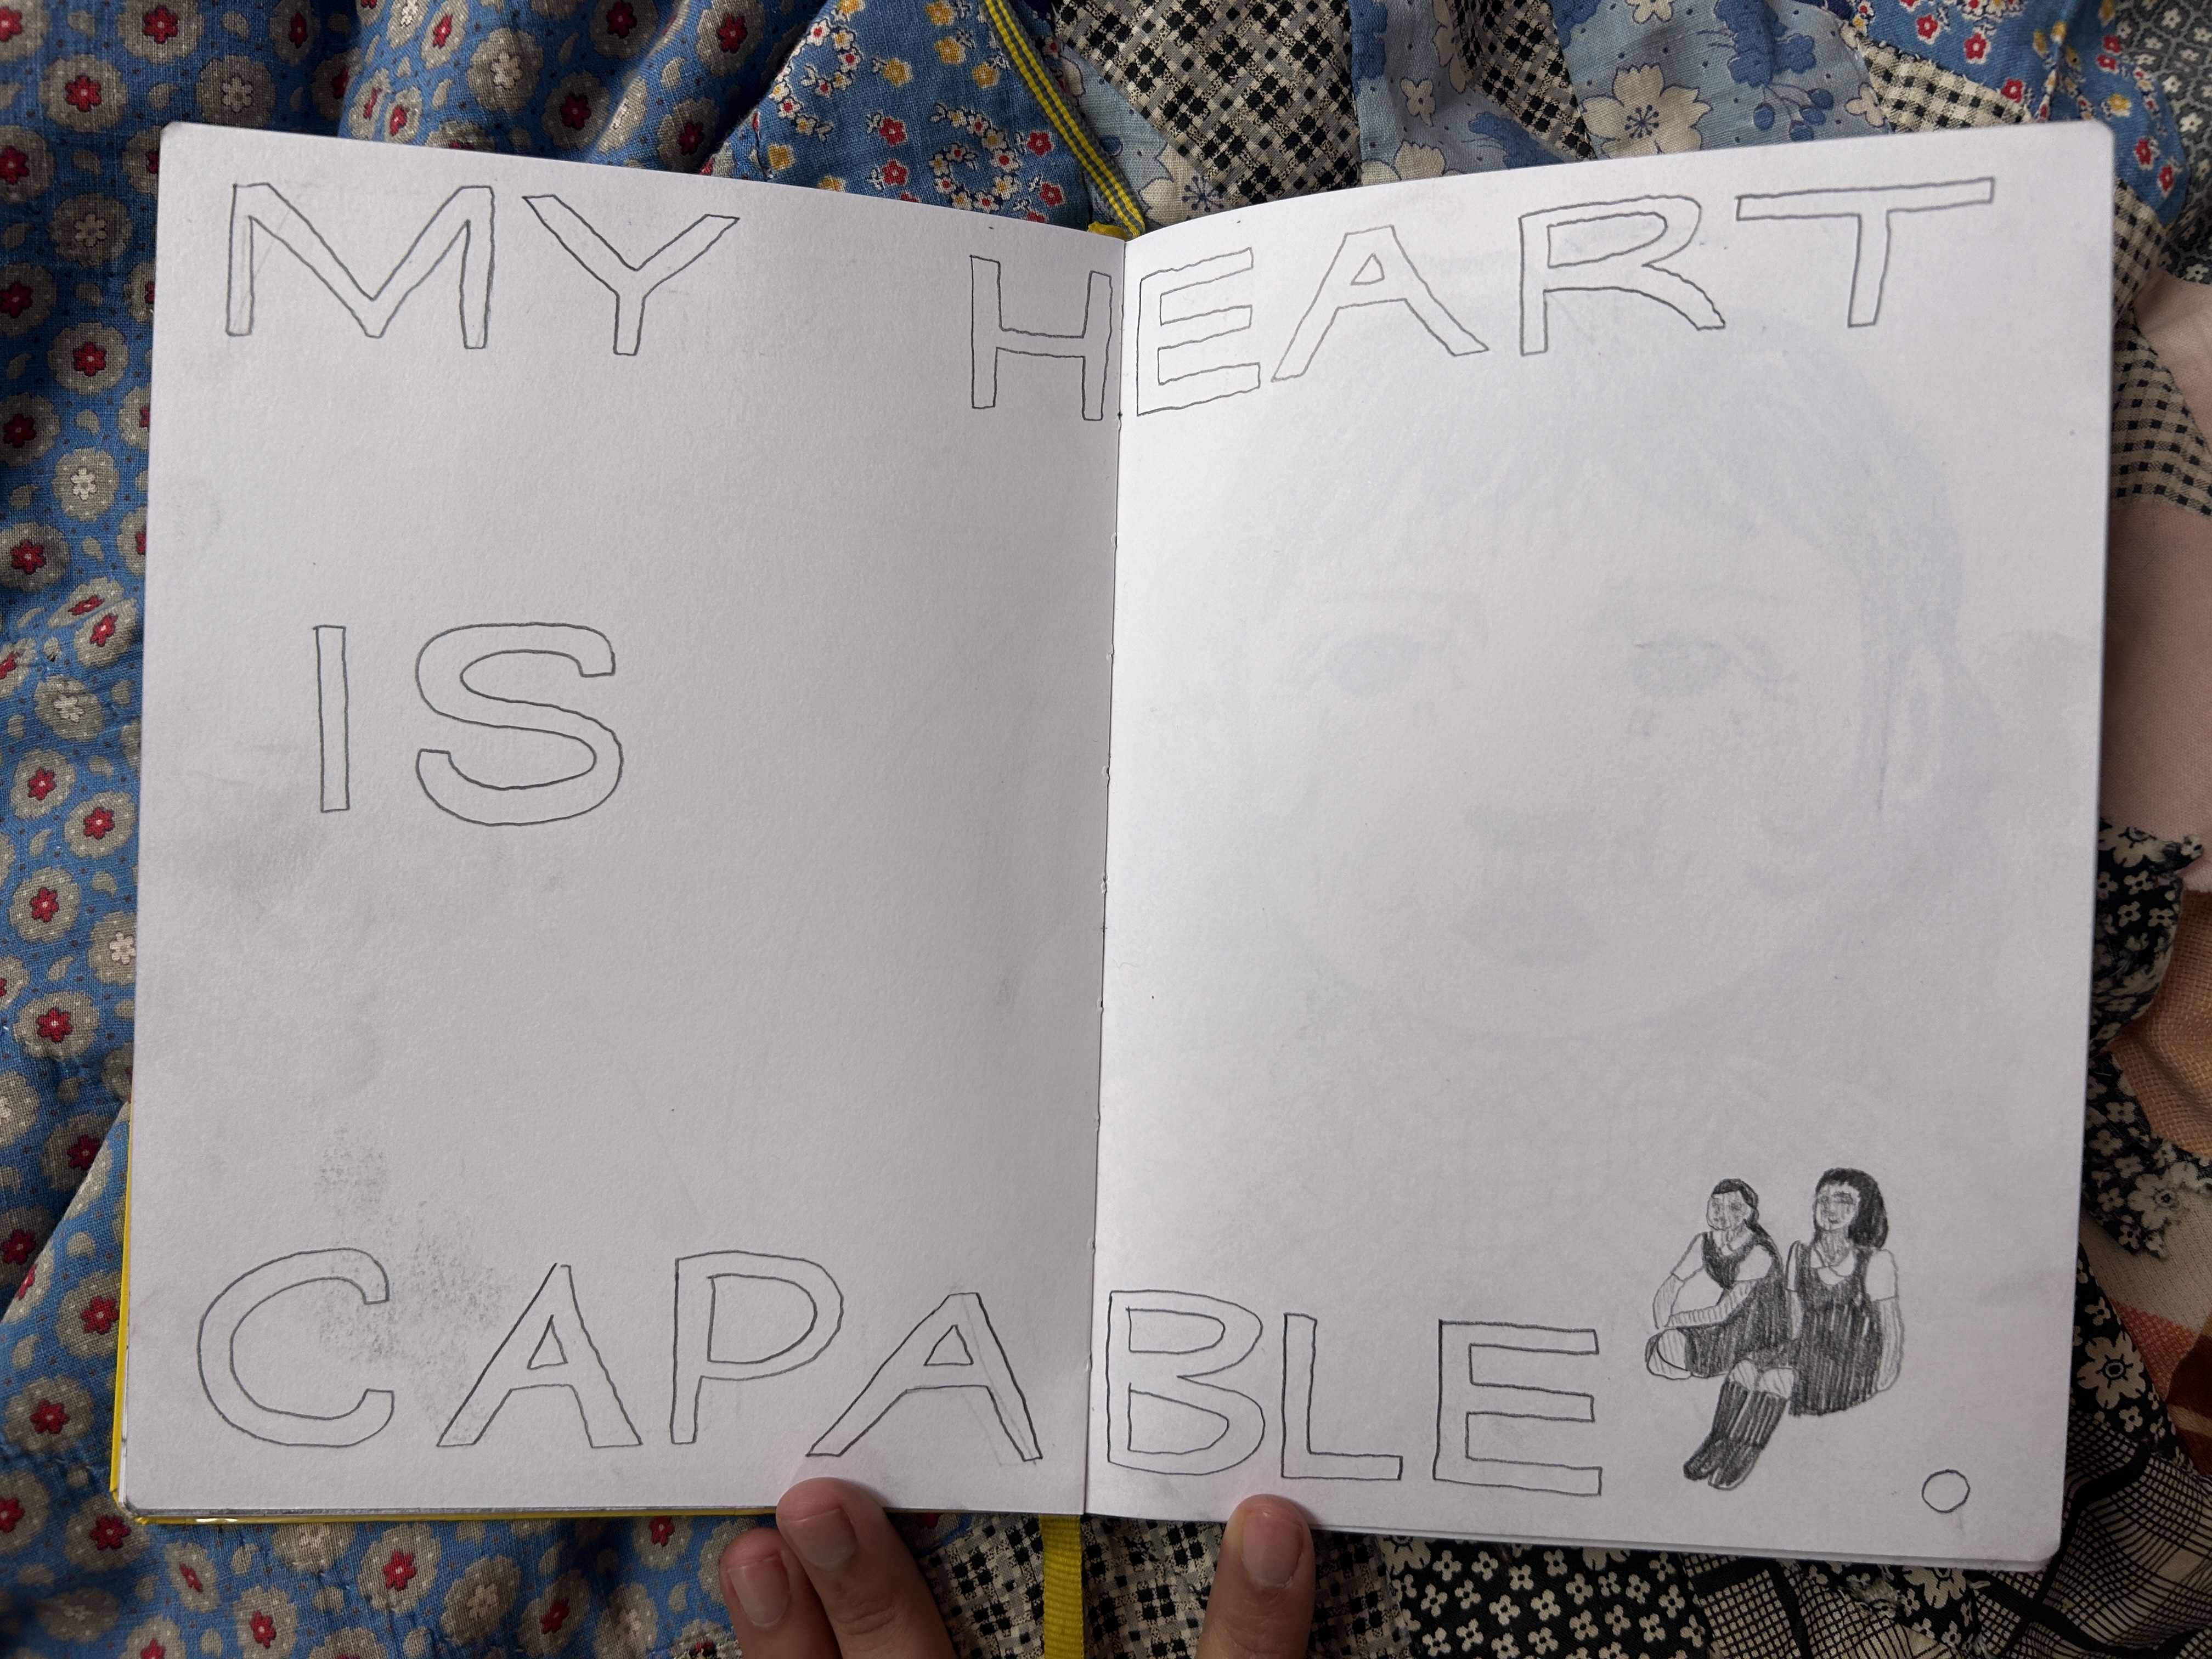 MY HEART
IS
CAPABLE.